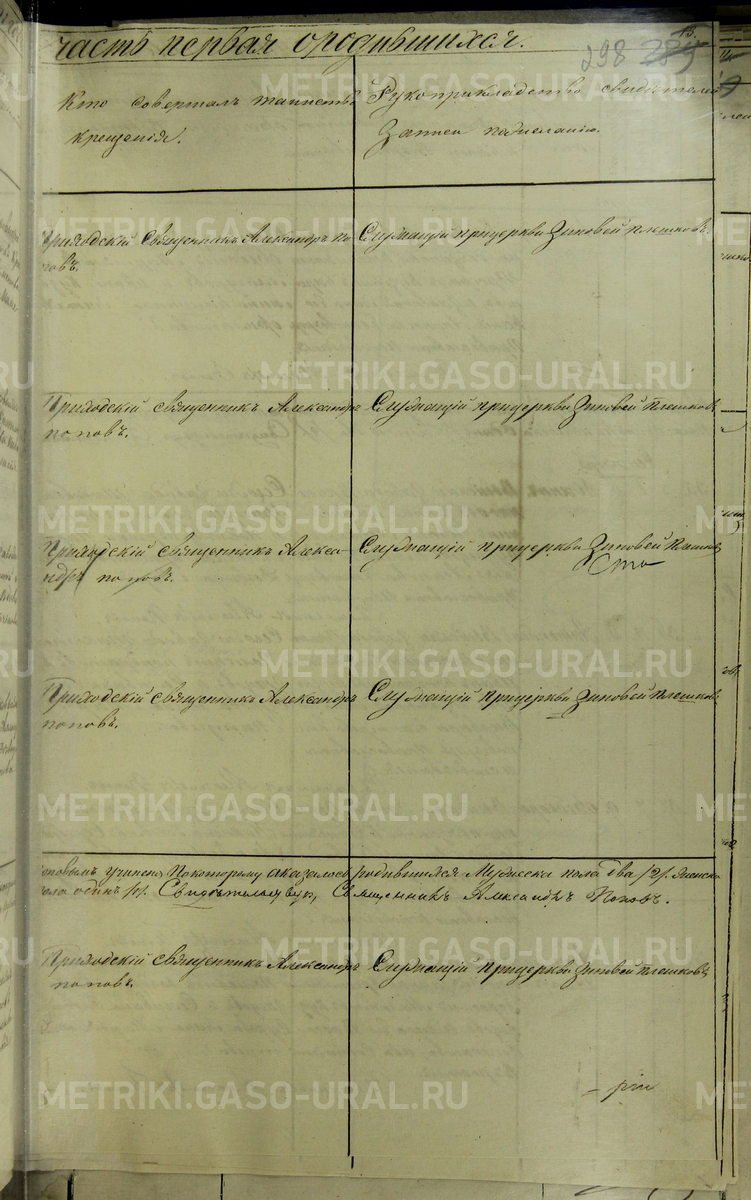 13.
часть первая ородившихся.
298 285
Кто совершалъ таинство
крещенія.
Рукоприкладство свидѣтелей
записи пожеланію.
Приходскій Священникъ Александръ По
повъ.
Служащій прицеркви Зиновей Плешковъ.
Приходскій священникъ Александръ
поповъ.
Служащій прицеркви Зиновей Плешковъ
Приходскій священникъ Алекса-
ндръ поповъ.
Служащій прицеркви Зиновей Плешков
Сто
Приходскій священникъ Александръ
поповъ.
Служащій прицеркви Зиновей Плешков
учинена покоторому оказалось родившихся Мужеска пола два /2/. Женска
пола одинъ /1/. Священникъ Александръ Поповъ.
Приходскій священникъ Александръ
поповъ.
Служащій прицеркви Зиновей Плешковъ
METRIKI.GASO-URAL.RU